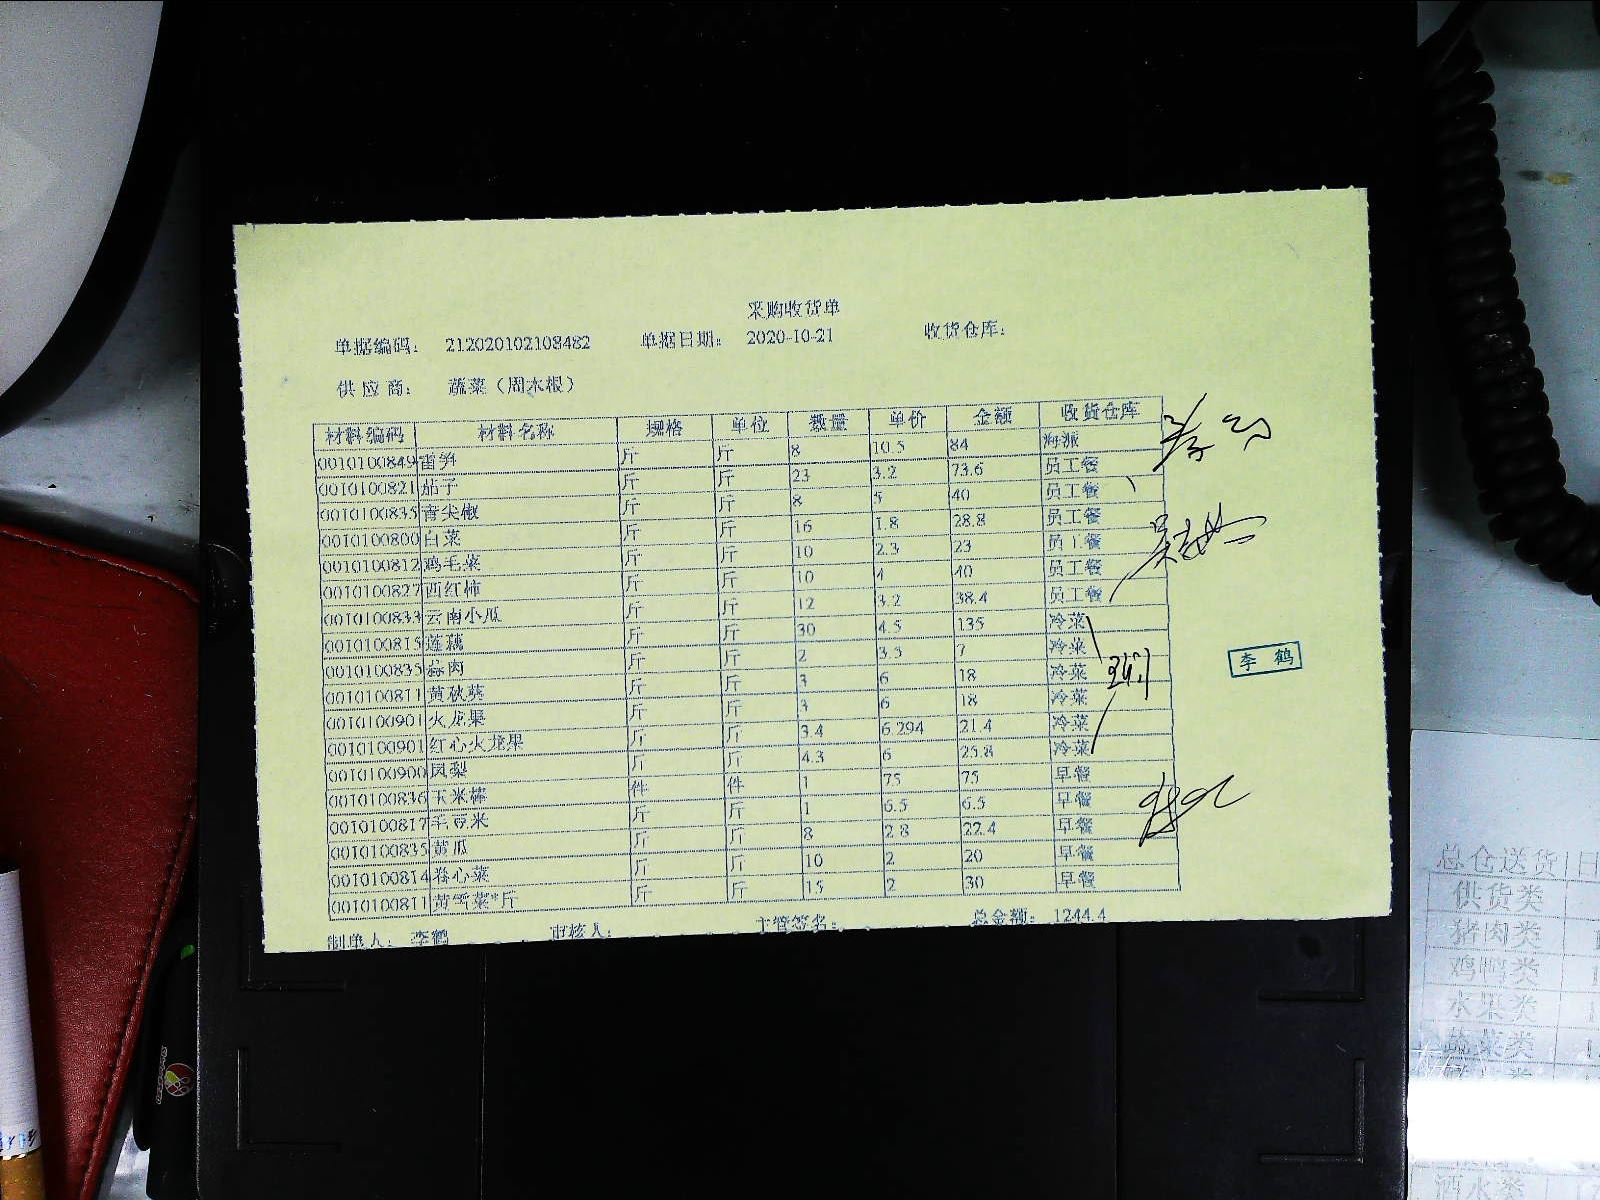 采购收货单
单据编码： 212020102108482 单据日期： 2020-10-21 收货仓库：
供应商： 蔬菜（周木根）
材料编码 材料名称 规格 单位 数量 单价 金额 收货仓库
0010100849 雷笋 斤 斤 8 10.5 84 海派
0010100821 茄子 斤 斤 23 3.2 73.6 员工餐
0010100835 青尖椒 斤 斤 8 5 40 员工餐
0010100800 白菜 斤 斤 16 1.8 28.8 员工餐
0010100812 鸡毛菜 斤 斤 10 2.3 23 员工餐
0010100827 西红柿 斤 斤 10 4 40 员工餐
0010100833 云南小瓜 斤 斤 12 3.2 38.4 员工餐
0010100815 莲藕 斤 斤 30 4.5 135 冷菜
0010100835 蒜肉 斤 斤 2 3.5 7 冷菜
0010100811 黄秋葵 斤 斤 3 6 18 冷菜
0010100901 火龙果 斤 斤 3 6 18 冷菜
0010100901 红心火龙果 斤 斤 3.4 6.294 21.4 冷菜
0010100900 凤梨 斤 斤 4.3 6 25.8 冷菜
0010100836 玉米棒 件 件 1 75 75 早餐
0010100817 毛豆米 斤 斤 1 6.5 6.5 早餐
0010100835 黄瓜 斤 斤 8 2.8 22.4 早餐
0010100814 卷心菜 斤 斤 10 2 20 早餐
0010100811 黄雪菜*斤 斤 斤 15 2 30 早餐
制单人： 李鹤 审核人： 主管签名： 总金额： 1244.4
李 鹤
总仓送货 日
供货类
猪肉类
鸡鸭类
水果类
蔬菜类
酒水类